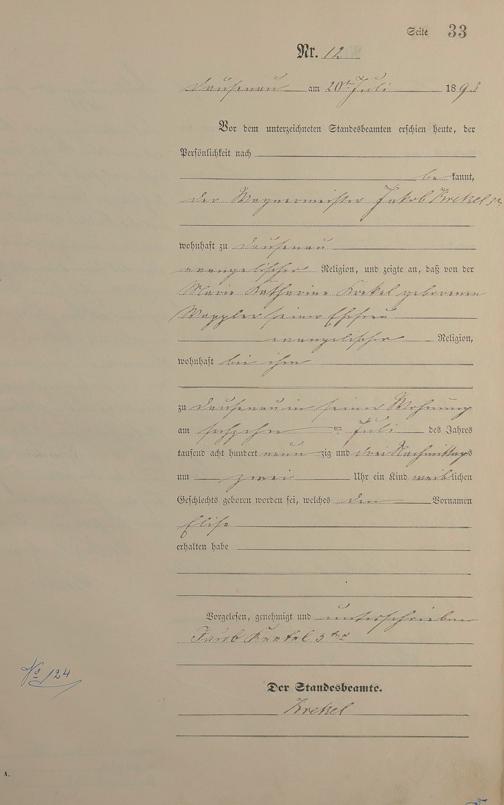 Seite 33
Nr. 12
Dausenau am 20ten Juli 1893
Vor dem unterzeichneten Standesbeamten erschien heute, der
Persönlichkeit nach
be kannt,
der Wagnermeister Jakob Krekel 3te
wohnhaft zu Dausenau
evangelischer Religion, und zeigte an, daß von der
Marie Katharine Krekel geborenen
Wappler seiner Ehefrau
evangelischer Religion,
wohnhaft bei ihm
zu Dausenau in seiner Wohnung
am sechzehn ten Juli des Jahres
tausend acht hundert neun zig und drei Nachmittags
um zwei Uhr ein Kind weiblichen
Geschlechts geboren worden sei, welches den Vornamen
Elise
erhalten habe
Vorgelesen, genehmigt und unterschrieben
Jacob Krekel 3te
No 124
Der Standesbeamte.
Krekel
A.